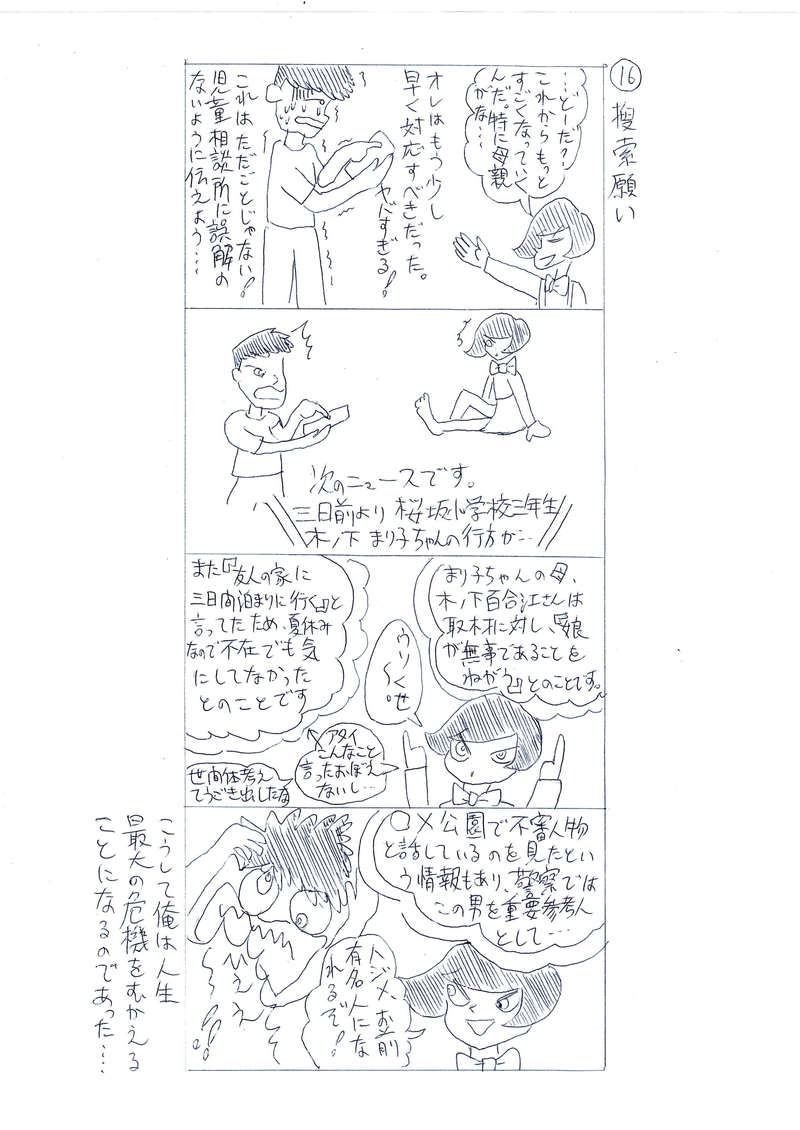 ⑯ 捜索願い
…どーだ?
これからもっと
すごくなっていく
んだ。特に母親
がな…
オレはもう少し
早く対応すべきだった。
ヤバすぎる!
これはただごとじゃない!
児童相談所に誤解の
ないように伝えよう…
次のニュースです。
三日前より 桜坂小学校三年生
木ノ下 まり子ちゃんの行方が…
まり子ちゃんの母、
木ノ下百合江さんは
取材に対し、『娘
が無事であることを
ねがう』とのことです。
ウソくせ
〜
また『友人の家に
三日間泊まりに行く』と
言ってたため、夏休み
なので不在でも気
にしてなかった
とのことです
アタイ
こんなこと
言ったおぼえ
ないし…
世間体考え
てうごき出したな
〇×公園で不審人物
と話しているのを見たとい
う情報もあり、警察では
この男を重要参考人
として…
ハジメ、お前
有名人にな
れるぞ!
ひええ
こうして俺は人生
最大の危機をむかえる
ことになるのであった…